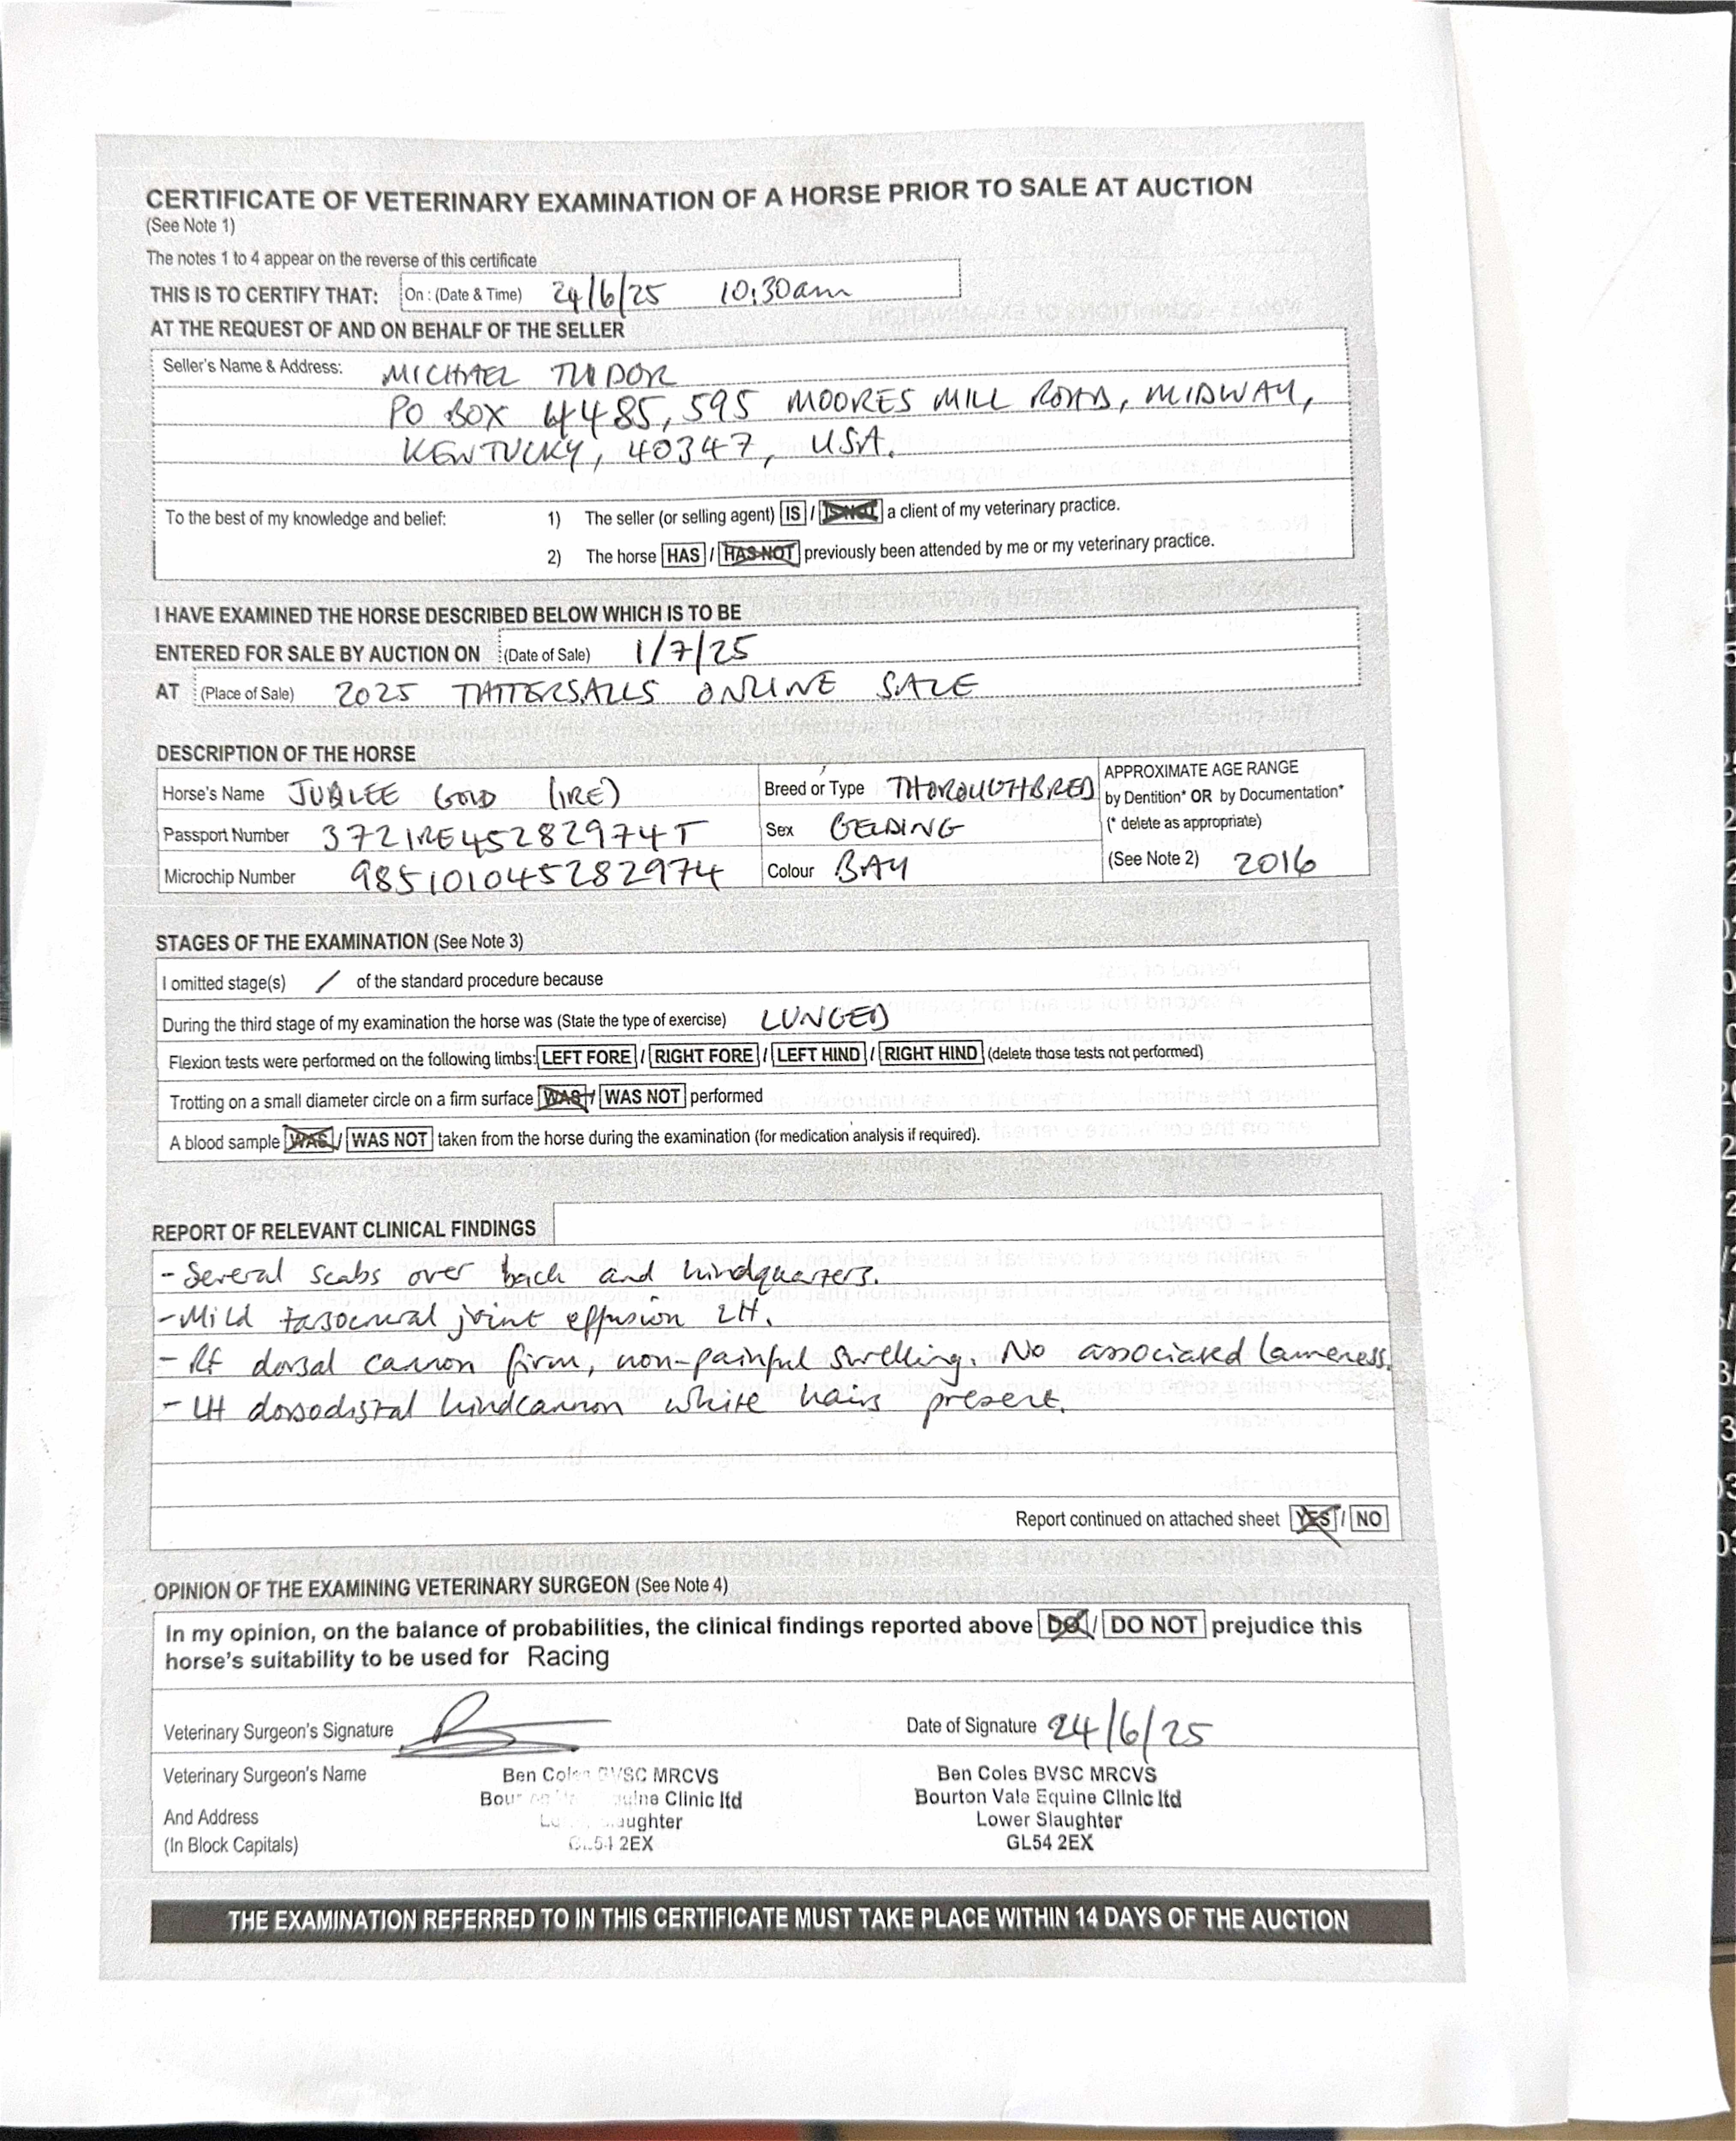 CERTIFICATE OF VETERINARY EXAMINATION OF A HORSE PRIOR TO SALE AT AUCTION
(See Note 1)
The notes 1 to 4 appear on the reverse of this certificate
THIS IS TO CERTIFY THAT: On : (Date & Time) 24/6/25 10:30am
AT THE REQUEST OF AND ON BEHALF OF THE SELLER
Seller's Name & Address: MICHAEL TUDOR
PO BOX 4485, 595 MOORES MILL ROAD, MIDWAY,
KENTUCKY, 40347, USA.
To the best of my knowledge and belief: 1) The seller (or selling agent) IS / IS NOT a client of my veterinary practice.
2) The horse HAS / HAS NOT previously been attended by me or my veterinary practice.
I HAVE EXAMINED THE HORSE DESCRIBED BELOW WHICH IS TO BE
ENTERED FOR SALE BY AUCTION ON (Date of Sale) 1/7/25
AT (Place of Sale) 2025 TATTERSALLS ONLINE SALE
DESCRIPTION OF THE HORSE
Horse's Name JUBLEE GOLD (IRE) Breed or Type THOROUGHBRED APPROXIMATE AGE RANGE
by Dentition* OR by Documentation*
Passport Number 372IRE45282974T Sex GELDING (* delete as appropriate)
Microchip Number 985101045282974 Colour BAY (See Note 2) 2016
STAGES OF THE EXAMINATION (See Note 3)
I omitted stage(s) / of the standard procedure because
During the third stage of my examination the horse was (State the type of exercise) LUNGED
Flexion tests were performed on the following limbs: LEFT FORE / RIGHT FORE / LEFT HIND / RIGHT HIND (delete those tests not performed)
Trotting on a small diameter circle on a firm surface WAS / WAS NOT performed
A blood sample WAS / WAS NOT taken from the horse during the examination (for medication analysis if required).
REPORT OF RELEVANT CLINICAL FINDINGS
- Several scabs over back and hindquarters.
- Mild tarsocrural joint effusion LH.
- RF dorsal cannon firm, non-painful swelling. No associated lameness.
- LH dorsodistal hindcannon white hairs present.
Report continued on attached sheet YES / NO
OPINION OF THE EXAMINING VETERINARY SURGEON (See Note 4)
In my opinion, on the balance of probabilities, the clinical findings reported above DO / DO NOT prejudice this
horse's suitability to be used for Racing
Veterinary Surgeon's Signature Date of Signature 24/6/25
Veterinary Surgeon's Name Ben Coles BVSC MRCVS Ben Coles BVSC MRCVS
Equine Clinic ltd Bourton Vale Equine Clinic ltd
And Address Slaughter Lower Slaughter
(In Block Capitals) GL54 2EX GL54 2EX
THE EXAMINATION REFERRED TO IN THIS CERTIFICATE MUST TAKE PLACE WITHIN 14 DAYS OF THE AUCTION